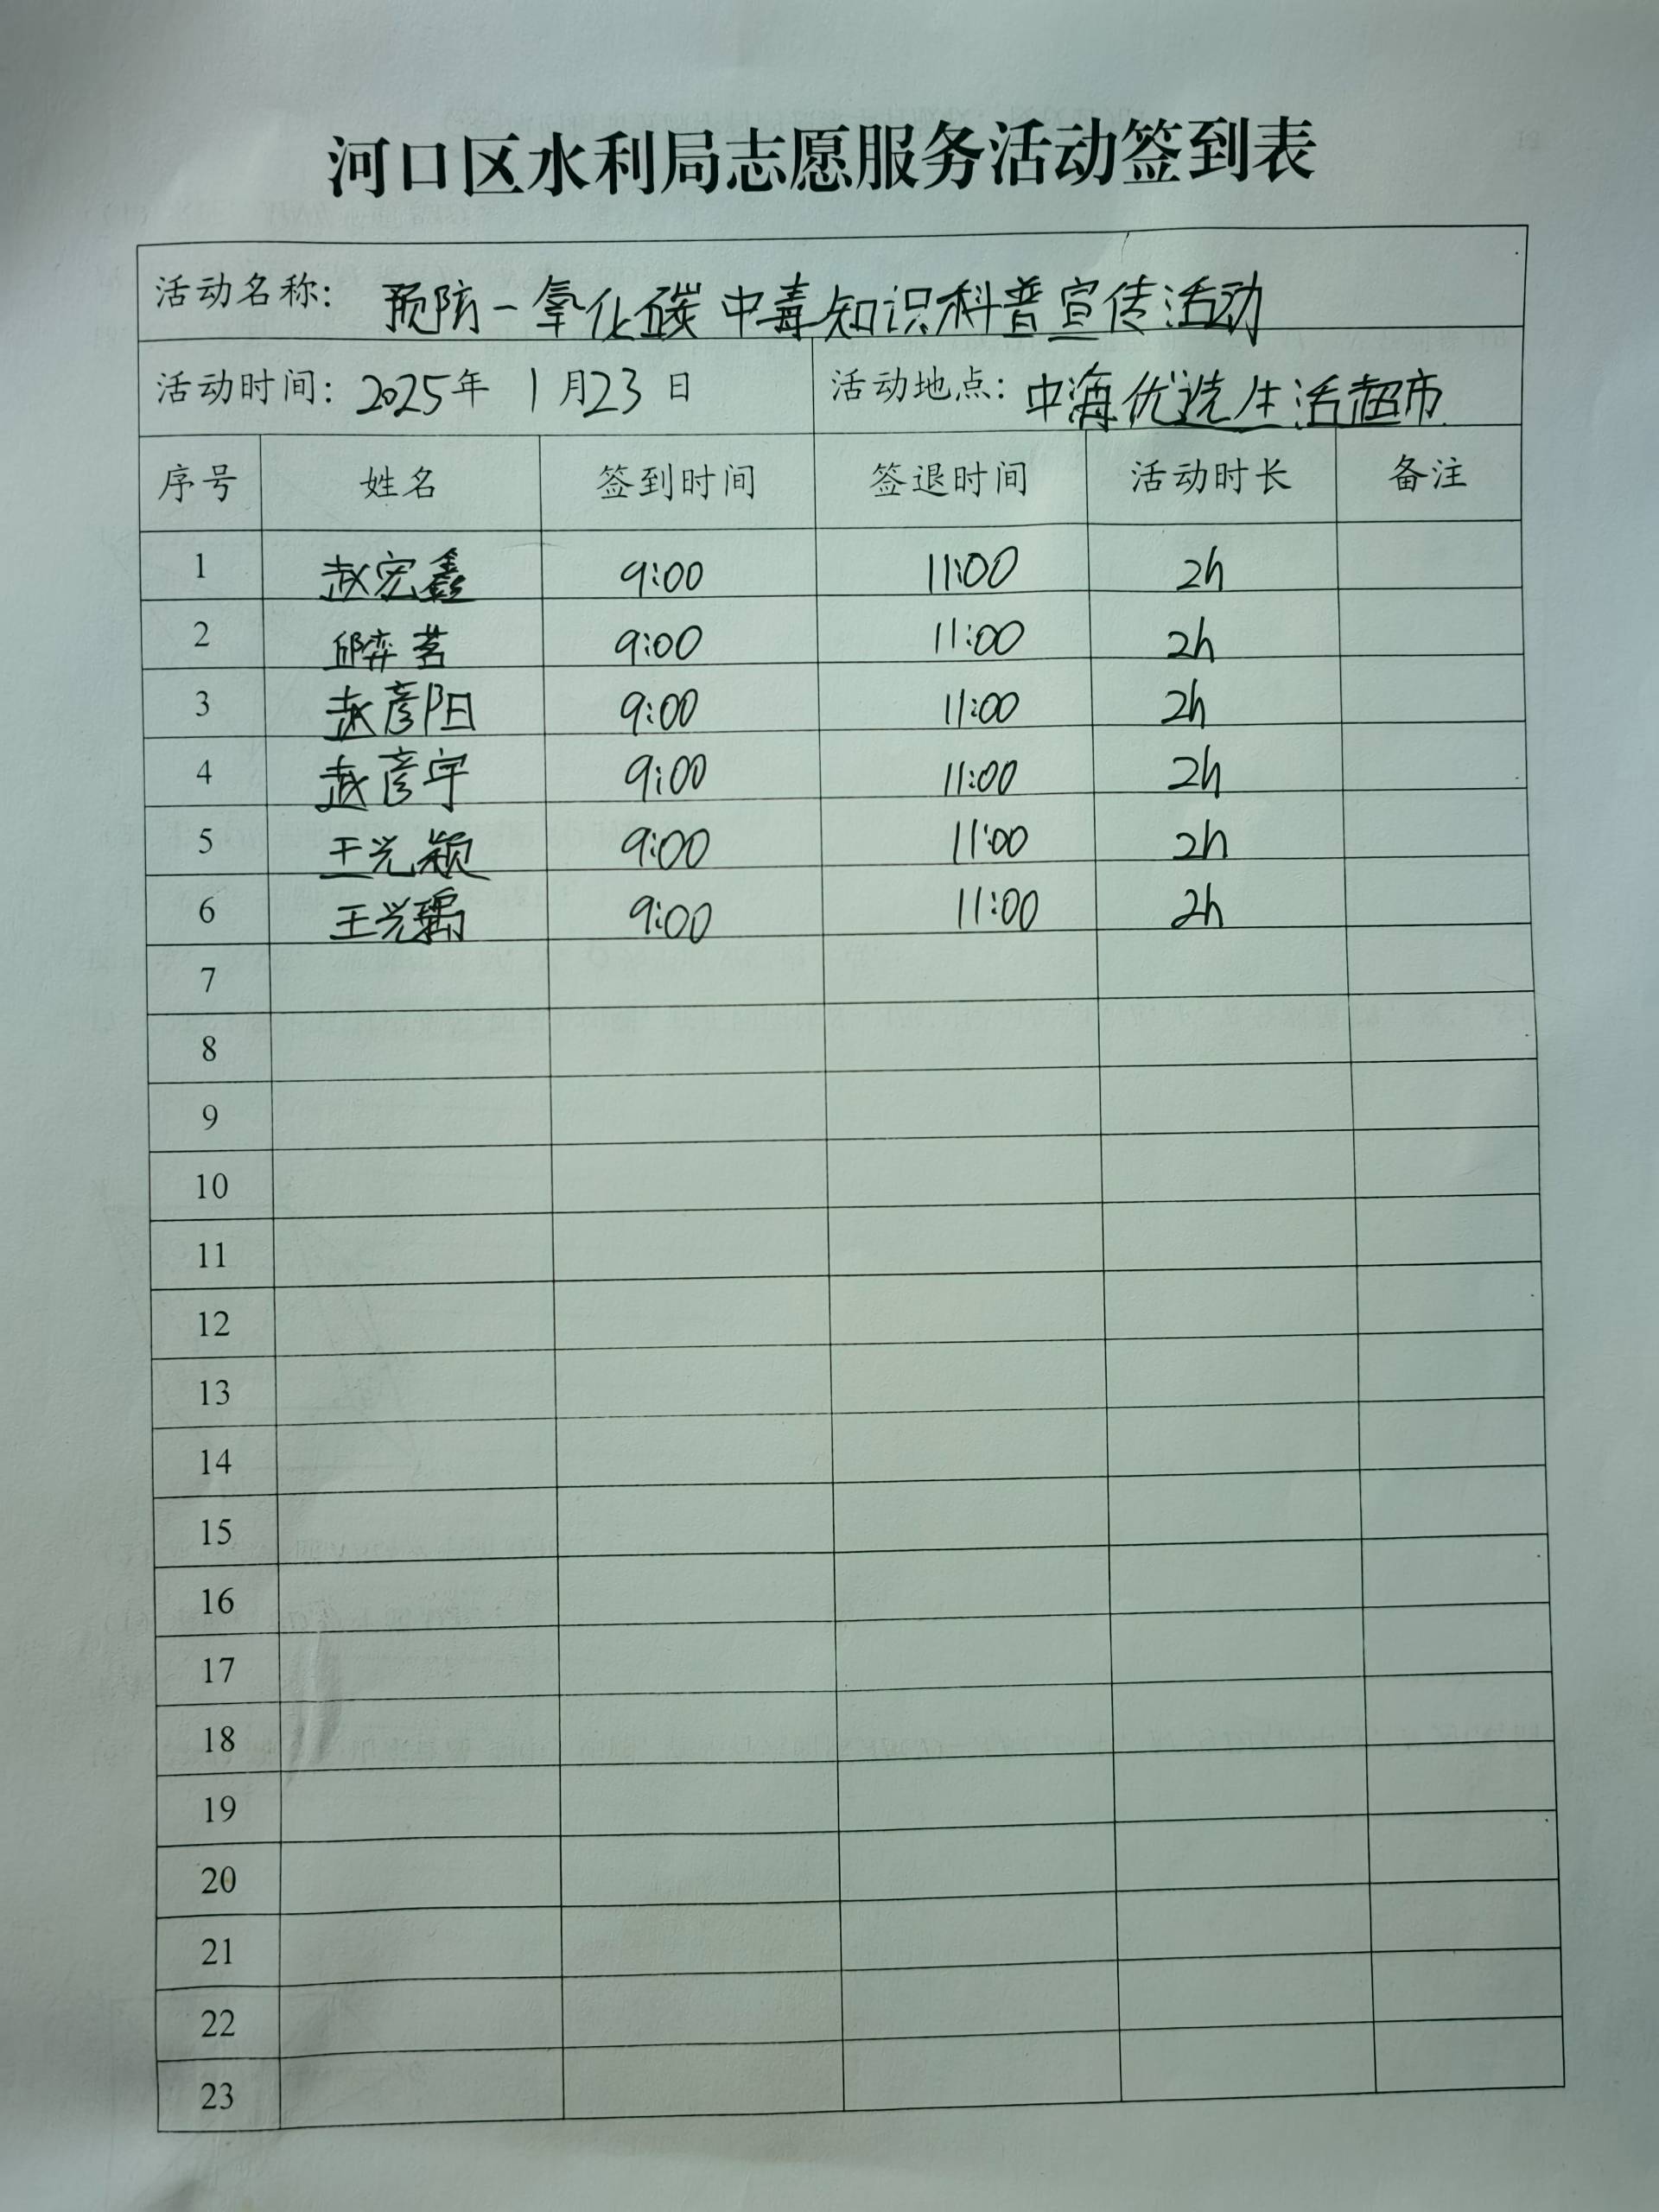 河口区水利局志愿服务活动签到表
活动名称: 预防一氧化碳中毒知识科普宣传活动
活动时间: 2025年 1月23日 活动地点: 中海优选生活超市
序号 姓名 签到时间 签退时间 活动时长 备注
1 赵宏鑫 9:00 11:00 2h
2 邱弈茗 9:00 11:00 2h
3 赵彦阳 9:00 11:00 2h
4 赵彦宇 9:00 11:00 2h
5 王兴颖 9:00 11:00 2h
6 王兴瑀 9:00 11:00 2h
7
8
9
10
11
12
13
14
15
16
17
18
19
20
21
22
23